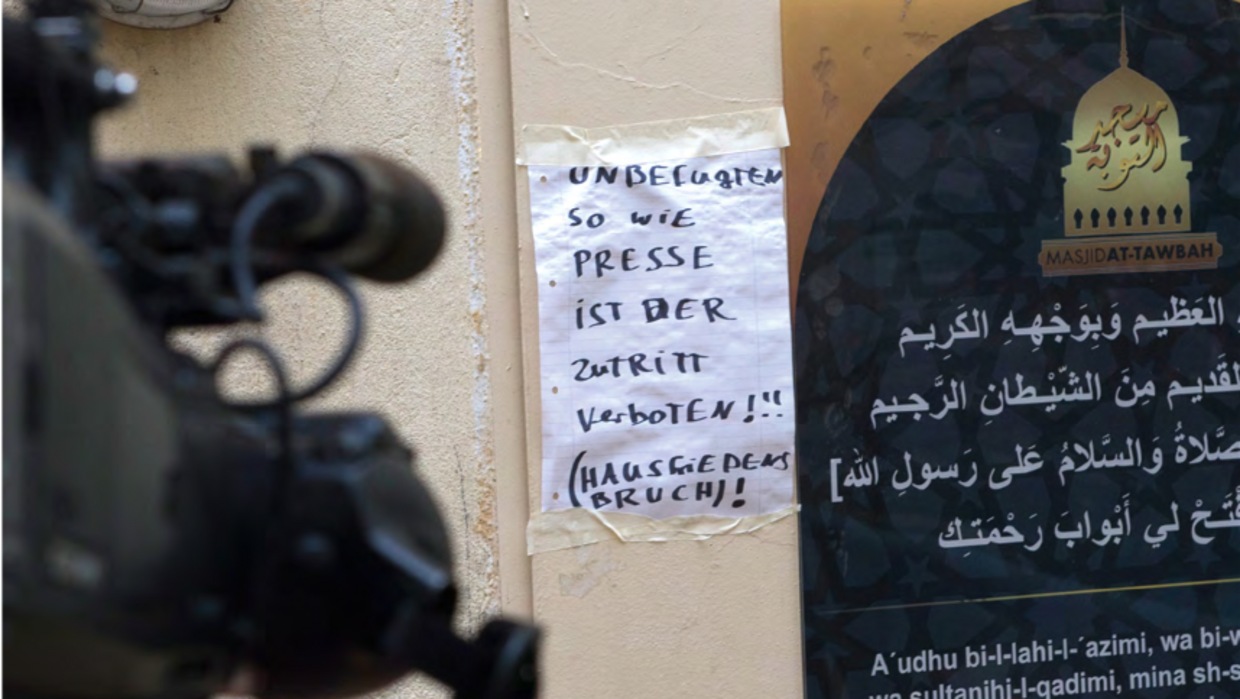 UNBEFUGTEN
SO WIE
PRESSE
IST DER
ZUTRITT
VERBOTEN!!!
(HAUSFRIEDENS
BRUCH)!
مسجد
التوبة
MASJID AT-TAWBAH
العَظيـم وَبِوَجْهِـهِ الكَرِيـم
القَديـم مِنَ الشَّيْـطانِ الرَّجـيم
وَالسَّلامُ عَلى رَسولِ الله]
لي أَبْوابَ رَحْمَتـِك
A´udhu bi-l-lahi-l-´azimi, wa bi-w
wa sultanihi-l-qadimi, mina sh-s